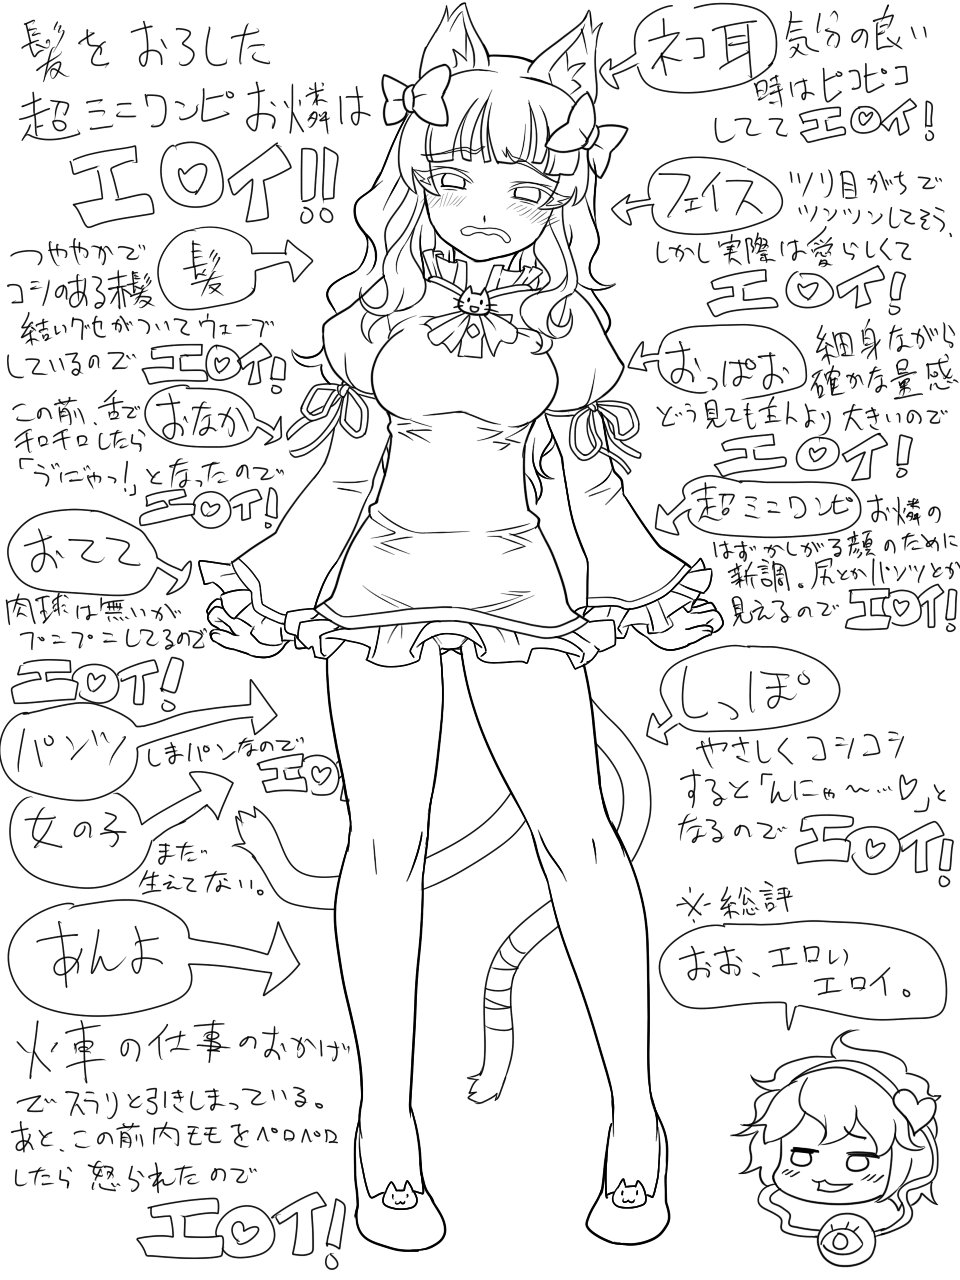 髪をおろした
超ミニワンピお燐は
エロイ!!
髪
つややかで
コシのある赤髪
結いグセがついてウェーブ
しているので エロイ!
おなか
この前、舌で
チロチロしたら
「ゔにゃっ!」となったので
エロイ!
おてて
肉球は無いが
プニプニしてるので
エロイ!
パンツ
しまパンなので
エロ
女の子
まだ
生えてない。
あんよ
火車の仕事のおかげ
でスラリと引きしまっている。
あと、この前内モモをペロペロ
したら怒られたので
エロイ!
ネコ耳
気分の良い
時はピコピコ
してて エロイ!
フェイス
ツリ目がちで
ツンツンしてそう、
しかし実際は愛らしくて
エロイ!
おっぱお
細身ながら
確かな量感
どう見ても主人より大きいので
エロイ!
超ミニワンピ
お燐の
はずかしがる顔のために
新調。尻とかパンツとか
見えるので エロイ!
しっぽ
やさしくコシコシ
すると「んにゃ〜…♡」と
なるので エロイ!
※総評
おお、エロい
エロイ。